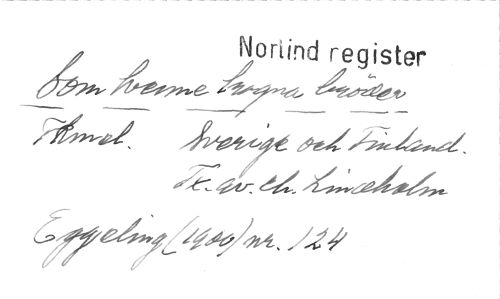 Norlind register
Som tvenne trogna bröder
Fkmel. Sverige och Finland.
Tx. av. Ch. Lindholm
Eggeling (1900) nr. 124